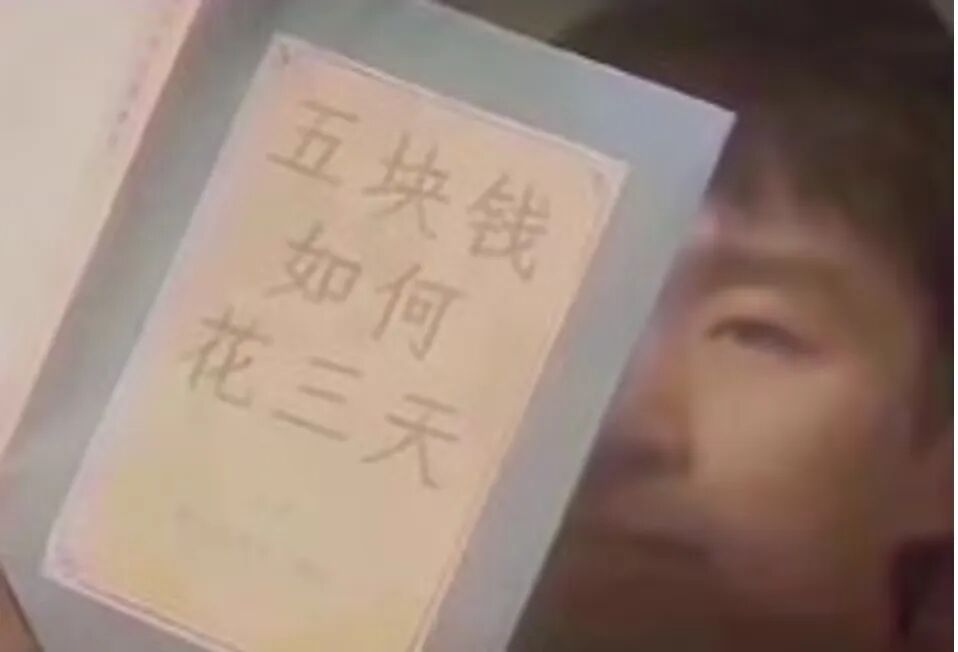 五块钱
如何
花三天